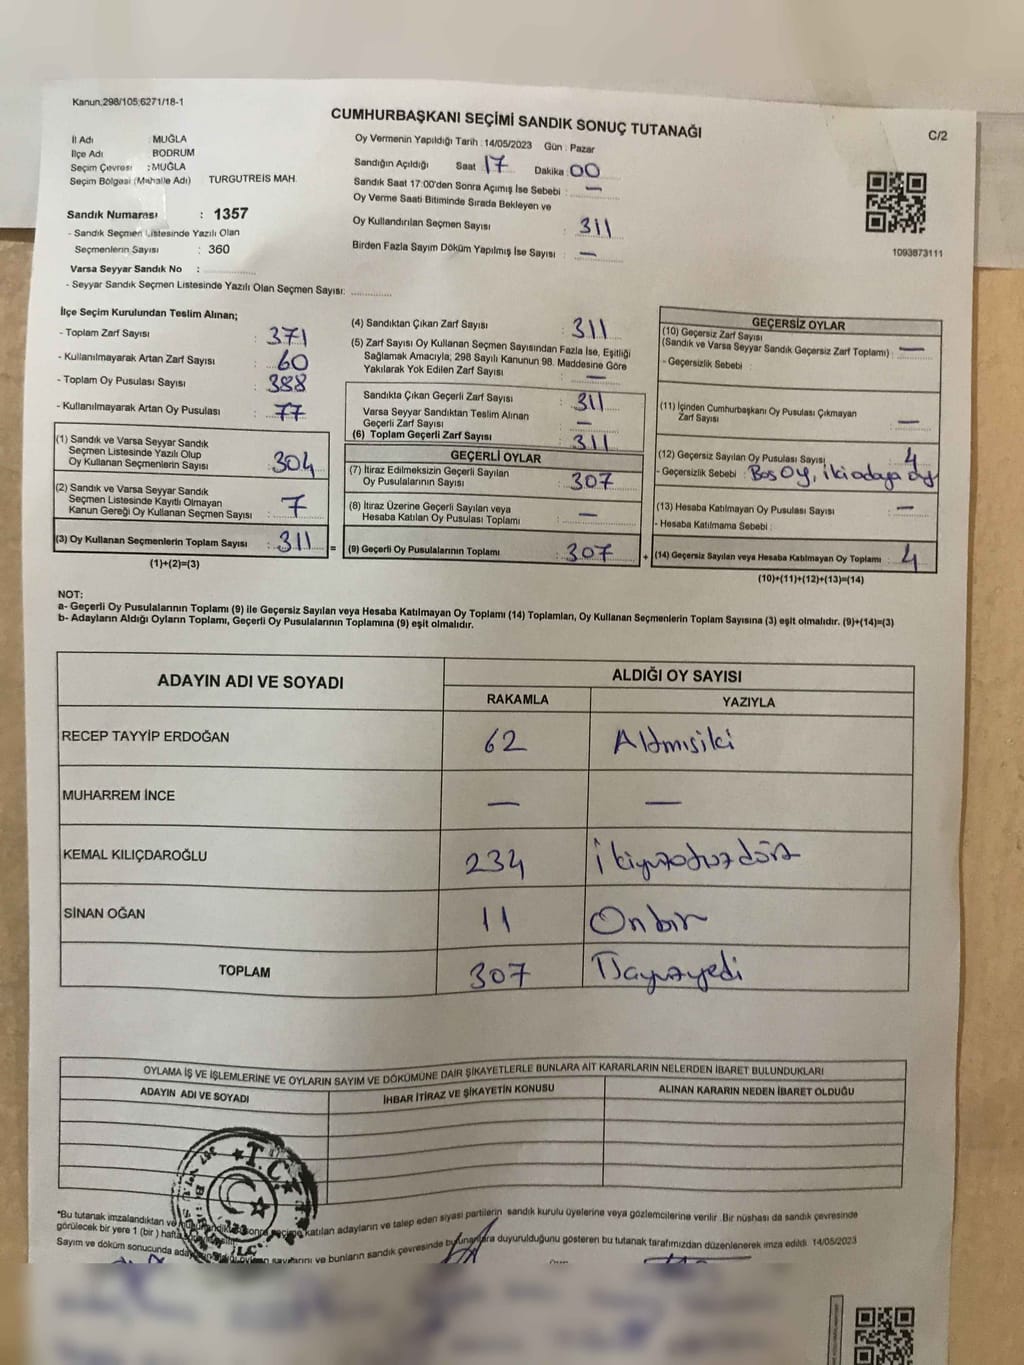 Kanun,298/105;6271/18-1
CUMHURBAŞKANI SEÇİMİ SANDIK SONUÇ TUTANAĞI
C/2
İl Adı : MUĞLA
İlçe Adı : BODRUM
Seçim Çevresi : MUĞLA
Seçim Bölgesi (Mahalle Adı) TURGUTREİS MAH.
Sandık Numarası : 1357
- Sandık Seçmen Listesinde Yazılı Olan
Seçmenlerin Sayısı : 360
Varsa Seyyar Sandık No :
- Seyyar Sandık Seçmen Listesinde Yazılı Olan Seçmen Sayısı:
Oy Vermenin Yapıldığı Tarih : 14/05/2023 Gün : Pazar
Sandığın Açıldığı Saat 17 Dakika : 00
Sandık Saat 17:00'den Sonra Açımış İse Sebebi : —
Oy Verme Saati Bitiminde Sırada Bekleyen ve
Oy Kullandırılan Seçmen Sayısı : 311
Birden Fazla Sayım Döküm Yapılmış İse Sayısı : —
1093873111
İlçe Seçim Kurulundan Teslim Alınan;
- Toplam Zarf Sayısı : 371
- Kullanılmayarak Artan Zarf Sayısı : 60
- Toplam Oy Pusulası Sayısı : 388
- Kullanılmayarak Artan Oy Pusulası : 77
(1) Sandık ve Varsa Seyyar Sandık
Seçmen Listesinde Yazılı Olup
Oy Kullanan Seçmenlerin Sayısı : 304
(2) Sandık ve Varsa Seyyar Sandık
Seçmen Listesinde Kayıtlı Olmayan
Kanun Gereği Oy Kullanan Seçmen Sayısı : 7
(3) Oy Kullanan Seçmenlerin Toplam Sayısı : 311
(1)+(2)=(3)
(4) Sandıktan Çıkan Zarf Sayısı : 311
(5) Zarf Sayısı Oy Kullanan Seçmen Sayısından Fazla İse, Eşitliği
Sağlamak Amacıyla; 298 Sayılı Kanunun 98. Maddesine Göre
Yakılarak Yok Edilen Zarf Sayısı : —
Sandıkta Çıkan Geçerli Zarf Sayısı : 311
Varsa Seyyar Sandıktan Teslim Alınan
Geçerli Zarf Sayısı : —
(6) Toplam Geçerli Zarf Sayısı : 311
GEÇERLİ OYLAR
(7) İtiraz Edilmeksizin Geçerli Sayılan
Oy Pusulalarının Sayısı : 307
(8) İtiraz Üzerine Geçerli Sayılan veya
Hesaba Katılan Oy Pusulası Toplamı : —
= (9) Geçerli Oy Pusulalarının Toplamı : 307 +
GEÇERSİZ OYLAR
(10) Geçersiz Zarf Sayısı
(Sandık ve Varsa Seyyar Sandık Geçersiz Zarf Toplamı) : —
- Geçersizlik Sebebi :
(11) İçinden Cumhurbaşkanı Oy Pusulası Çıkmayan
Zarf Sayısı : —
(12) Geçersiz Sayılan Oy Pusulası Sayısı : 4
- Geçersizlik Sebebi : Boş Oy, iki adaya oy
(13) Hesaba Katılmayan Oy Pusulası Sayısı : —
- Hesaba Katılmama Sebebi :
(14) Geçersiz Sayılan veya Hesaba Katılmayan Oy Toplamı : 4
(10)+(11)+(12)+(13)=(14)
NOT:
a- Geçerli Oy Pusulalarının Toplamı (9) ile Geçersiz Sayılan veya Hesaba Katılmayan Oy Toplamı (14) Toplamları, Oy Kullanan Seçmenlerin Toplam Sayısına (3) eşit olmalıdır. (9)+(14)=(3)
b- Adayların Aldığı Oyların Toplamı, Geçerli Oy Pusulalarının Toplamına (9) eşit olmalıdır.
ADAYIN ADI VE SOYADI
ALDIĞI OY SAYISI
RAKAMLA YAZIYLA
RECEP TAYYİP ERDOĞAN 62 Altmışiki
MUHARREM İNCE — —
KEMAL KILIÇDAROĞLU 234 İkiyüzotuzdört
SİNAN OĞAN 11 Onbir
TOPLAM 307 Üçyüzyedi
OYLAMA İŞ VE İŞLEMLERİNE VE OYLARIN SAYIM VE DÖKÜMÜNE DAİR ŞİKAYETLERLE BUNLARA AİT KARARLARIN NELERDEN İBARET BULUNDUKLARI
ADAYIN ADI VE SOYADI İHBAR İTİRAZ VE ŞİKAYETİN KONUSU ALINAN KARARIN NEDEN İBARET OLDUĞU
T.C.
*Bu tutanak imzalandıktan ve sonra seçime katılan adayların ve talep eden siyasi partilerin sandık kurulu üyelerine veya gözlemcilerine verilir .Bir nüshası da sandık çevresinde
görülecek bir yere 1 (bir ) hafta
Sayım ve döküm sonucunda sayılarını ve bunların sandık çevresinde duyurulduğunu gösteren bu tutanak tarafımızdan düzenlenerek imza edildi. 14/05/2023